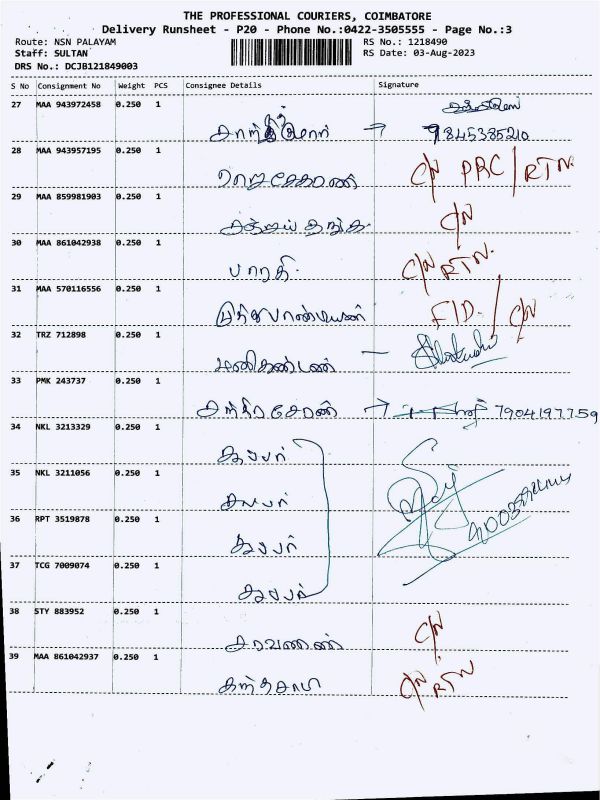 THE PROFESSIONAL COURIERS, COIMBATORE
Delivery Runsheet - P20 - Phone No.:0422-3505555 - Page No.:3
Route: NSN PALAYAM RS No.: 1218490
Staff: SULTAN RS Date: 03-Aug-2023
DRS No.: DCJB121849003
S No Consignment No Weight PCS Consignee Details Signature
27 MAA 943972458 0.250 1
→ 9845385210
28 MAA 943957195 0.250 1
C/N PRC/RTN.
29 MAA 859981903 0.250 1
C/N
30 MAA 861042938 0.250 1
பாரதி. C/N RTN.
31 MAA 570116556 0.250 1
முத்துபாண்டியன் FID./C/N
32 TRZ 712898 0.250 1
மணிகண்டன் —
33 PMK 243737 0.250 1
சந்திரசேரன் → 7904197759
34 NKL 3213329 0.250 1
35 NKL 3211056 0.250 1
36 RPT 3519878 0.250 1
37 TCG 7009074 0.250 1
38 STY 883952 0.250 1
சரவணன் C/N
39 MAA 861042937 0.250 1
கந்தசாமி C/N RTN